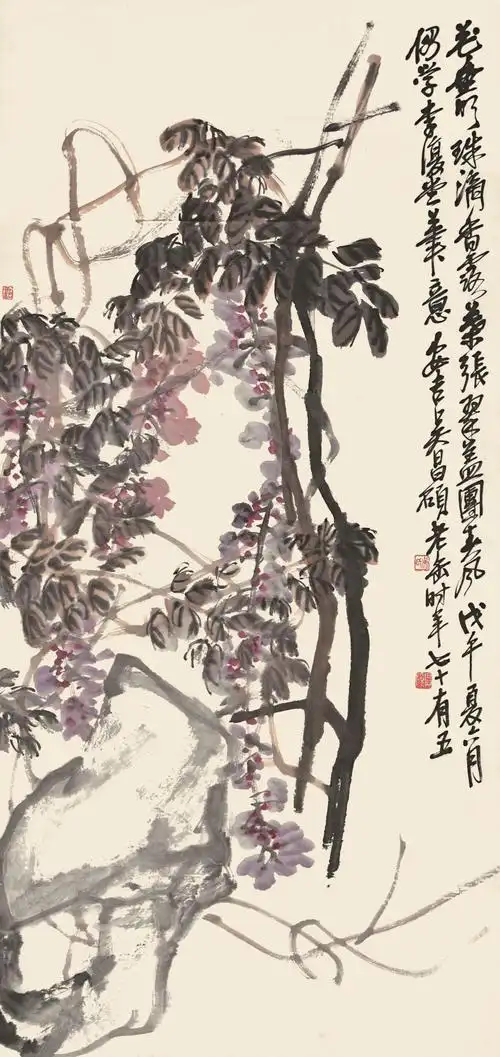 花垂明珠滴香露葉張翠蓋團春風戊午夏六月
偶学李復堂筆意安吉吳昌碩老缶时年七十有五